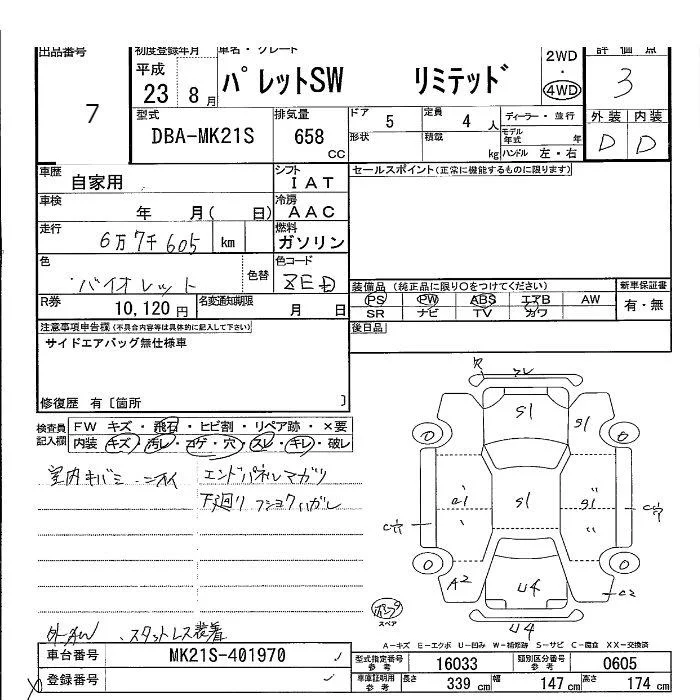 出品番号 初度登録年月 車名・グレード 評価点
7 平成 23 8月 パレットSW リミテッド 2WD・4WD 3
型式 DBA-MK21S 排気量 658 CC
ドア 5 定員 4 人 ディーラー・並行 外装 内装
形状 積載 kg モデル年式 年 D D
ハンドル 左・右
車歴 自家用 シフト IAT セールスポイント(正常に機能するものに限ります)
車検 年 月( 日) 冷房 AAC
走行 6万7千605 km 燃料 ガソリン
色 バイオレット 色替 色コード ZED
装備品 (純正品に限り○をつけてください) 新車保証書
PS PW ABS エアB AW 有・無
SR ナビ TV カワ
R券 10,120円 名変通知期限 月 日
後日品
注意事項申告欄(不具合内容等は具体的に記入して下さい)
サイドエアバッグ無仕様車
修復歴 有〔箇所 〕
検査員記入欄 FW キズ・飛石・ヒビ割・リペア跡・×要
内装 キズ・汚レ・コゲ・穴・スレ・キレ・破レ
室内キバミ エンドパネルマガリ
下廻り フショクハガレ
スタットレス装着
S1
S1
S1
S1
A2
U4
C2
U4
スペア
A-キズ E-エクボ U-凹み W-補修跡 S-サビ C-腐食 XX-交換済
車台番号 MK21S-401970
登録番号
型式指定番号 参考 16033 類別区分番号 参考 0605
車庫証明用 参考 長さ 339 cm 幅 147 cm 高さ 174 cm